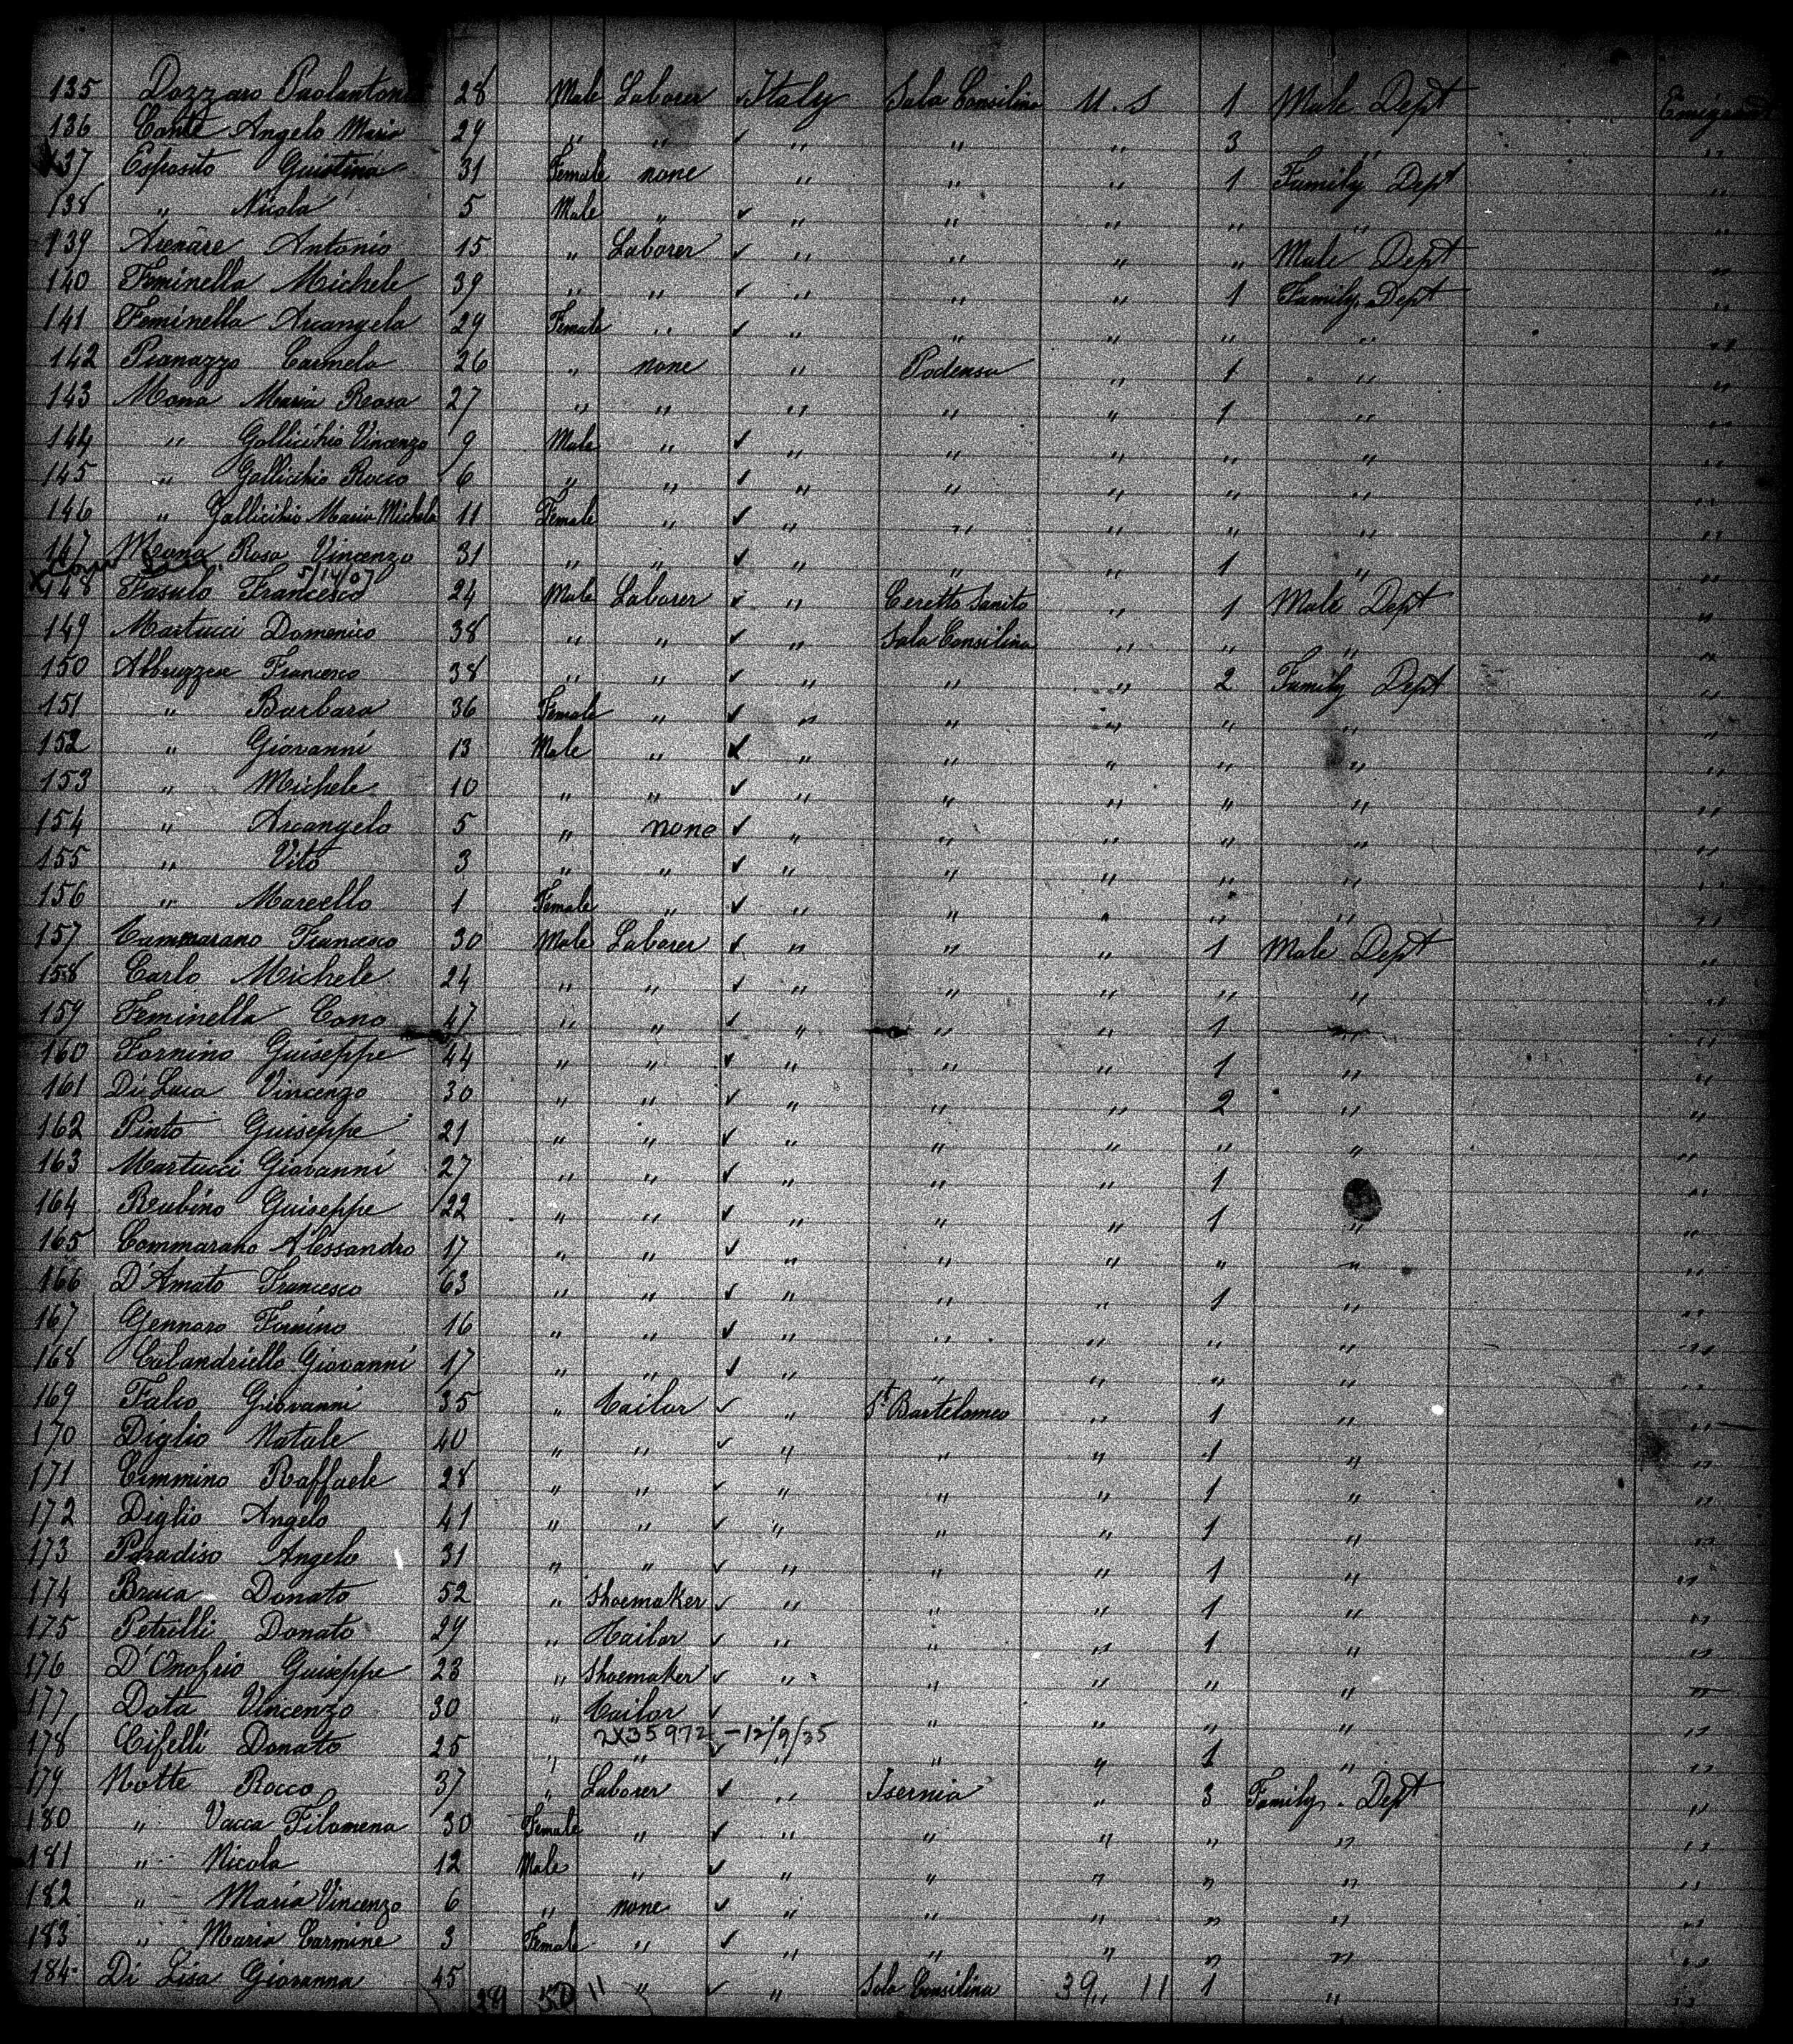 135 Dazzaro Paolantoni 28 Male Laborer ✓ Italy Sala Consilina U.S 1 Male Dept Emigrant
136 Conte Angelo Maria 29 " " ✓ " " " 3 " "
137 Esposito Guistina 31 Female none " " " 1 Family Dept "
138 " Nicola 5 Male " ✓ " " " " " "
139 Arenare Antonio 15 " Laborer ✓ " " " " Male Dept "
140 Feminella Michele 39 " " ✓ " " " 1 Family Dept "
141 Feminella Arcangela 29 Female " ✓ " " " " " "
142 Pianazzo Carmela 26 " none " Podensa " 1 " "
143 Mona Maria Rosa 27 " " " " " 1 " "
144 " Gallicchio Vincenzo 9 Male " ✓ " " " " " "
145 " Gallicchio Rocco 6 " " ✓ " " " " " "
146 " Gallicchio Maria Michela 11 Female " ✓ " " " " " "
147 Mona Rosa Vincenzo 31 " " ✓ " " " 1 " "
5/14/07
148 Fasulo Francesco 24 Male Laborer ✓ " Ceretto Sanito " 1 Male Dept "
149 Martucci Domenico 38 " " ✓ " Sala Consilina " " " "
150 Abbruzzese Francesco 38 " " ✓ " " " 2 Family Dept "
151 " Barbara 36 Female " ✓ " " " " " "
152 " Giovanni 13 Male " ✓ " " " " " "
153 " Michele 10 " " ✓ " " " " " "
154 " Arcangelo 5 " none ✓ " " " " " "
155 " Vito 3 " " ✓ " " " " " "
156 " Marcello 1 Female " ✓ " " " " " "
157 Cammarano Francesco 30 Male Laborer ✓ " " " 1 Male Dept "
158 Carlo Michele 24 " " ✓ " " " " " "
159 Feminella Cono 47 " " ✓ " " " 1 " "
160 Fornino Guiseppe 44 " " ✓ " " " 1 " "
161 Di Luca Vincenzo 30 " " ✓ " " " 2 " "
162 Pinto Guiseppe 21 " " ✓ " " " " " "
163 Martucci Giovanni 27 " " ✓ " " " 1 "
164 Rubino Guiseppe 22 " " ✓ " " " 1 " "
165 Commarano Alessandro 17 " " ✓ " " " " " "
166 D'Amato Francesco 63 " " ✓ " " " 1 " "
167 Gennaro Fornino 16 " " ✓ " " " " " "
168 Calandriello Giovanni 17 " " ✓ " " " " " "
169 Falco Giovanni 35 " Tailor ✓ " St Bartelomeo " 1 " "
170 Diglio Natale 40 " " ✓ " " " 1 " "
171 Cimmino Raffaele 28 " " ✓ " " " 1 " "
172 Diglio Angelo 41 " " ✓ " " " 1 " "
173 Paradiso Angelo 31 " " ✓ " " " 1 " "
174 Braca Donato 52 " Shoemaker ✓ " " " 1 " "
175 Petrelli Donato 29 " Tailor ✓ " " " 1 " "
176 D'Onofrio Guiseppe 23 " Shoemaker ✓ " " " " " "
177 Dota Vincenzo 30 " Tailor ✓ " " " " "
2X35972 - 12/9/35
178 Cifelli Donato 25 " " ✓ " " " 1 " "
179 Notte Rocco 37 " Laborer ✓ " Isernia " 3 Family Dept "
180 " Vacca Filomena 30 Female " ✓ " " " " " "
181 " Nicola 12 Male " ✓ " " " " " "
182 " Maria Vincenzo 6 " none ✓ " " " " " "
183 " Maria Carmine 3 Female " ✓ " " " " " "
184 Di Lisa Giovanna 45 " " ✓ " Sala Consilina " 1 " "
29 50 11 39 11